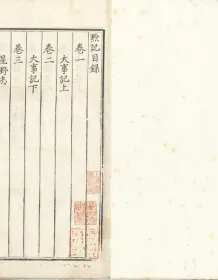 黔記目錄
卷一
大事記上
卷二
大事記下
卷三
星野志